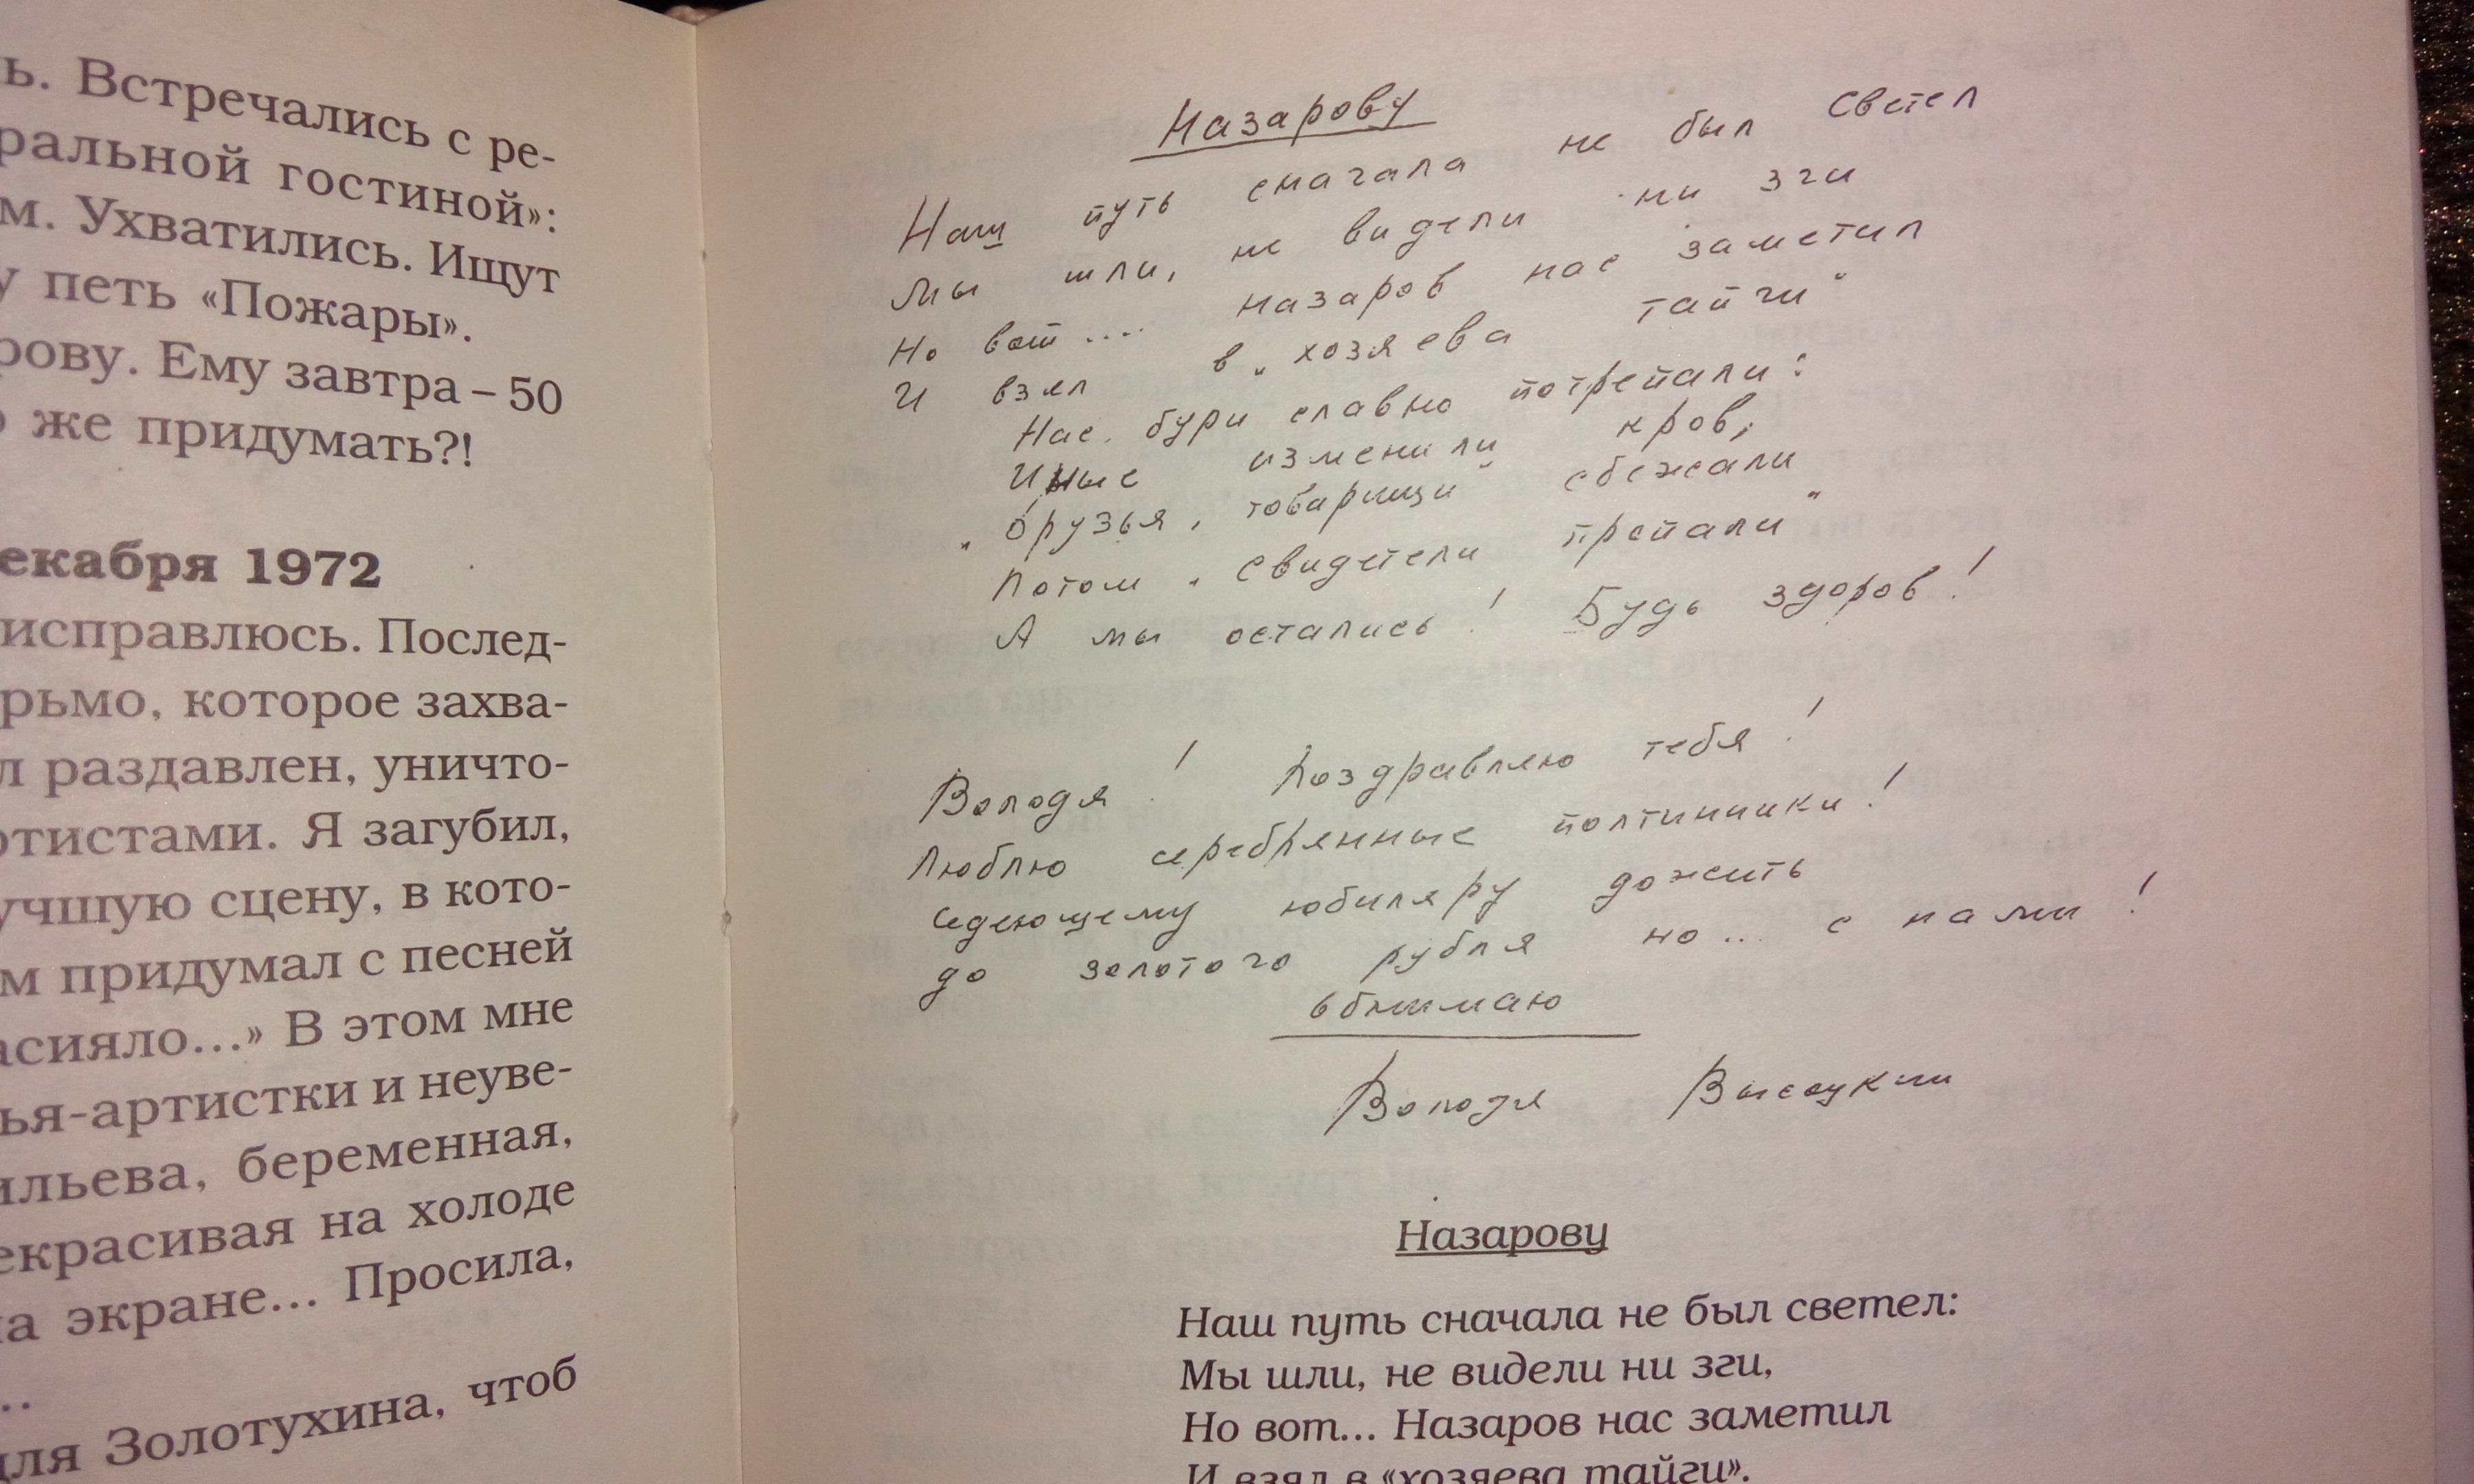 ь. Встречались с ре-
ральной гостиной»:
м. Ухватились. Ищут
у петь «Пожары».
рову. Ему завтра – 50
о же придумать?!
екабря 1972
исправлюсь. Послед-
рьмо, которое захва-
л раздавлен, уничто-
ртистами. Я загубил,
учшую сцену, в кото-
м придумал с песней
асияло...» В этом мне
ья-артистки и неуве-
ильева, беременная,
екрасивая на холоде
на экране... Просила,
..
для Золотухина, чтоб
Назарову
Наш путь сначала не был светел
Мы шли, не видели ни зги
Но вот.... Назаров нас заметил
И взял в „хозяева тайги"
Нас бури славно потрепали:
Иные изменили кров,
„Друзья, товарищи" сбежали
Потом „свидетели препали"
А мы остались! Будь здоров!
Володя! Поздравляю тебя!
Люблю серебрянные полтинники!
Седеющему юбиляру дожить
до золотого рубля но... с нами!
обнимаю
Володя Высоцкий
Назарову
Наш путь сначала не был светел:
Мы шли, не видели ни зги,
Но вот... Назаров нас заметил
И взял в «хозяева тайги».